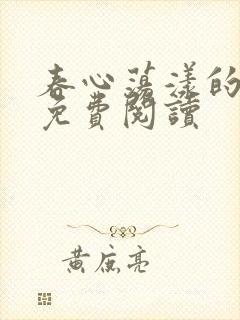 春心蕩漾的
免費閱讀
黃庶亮